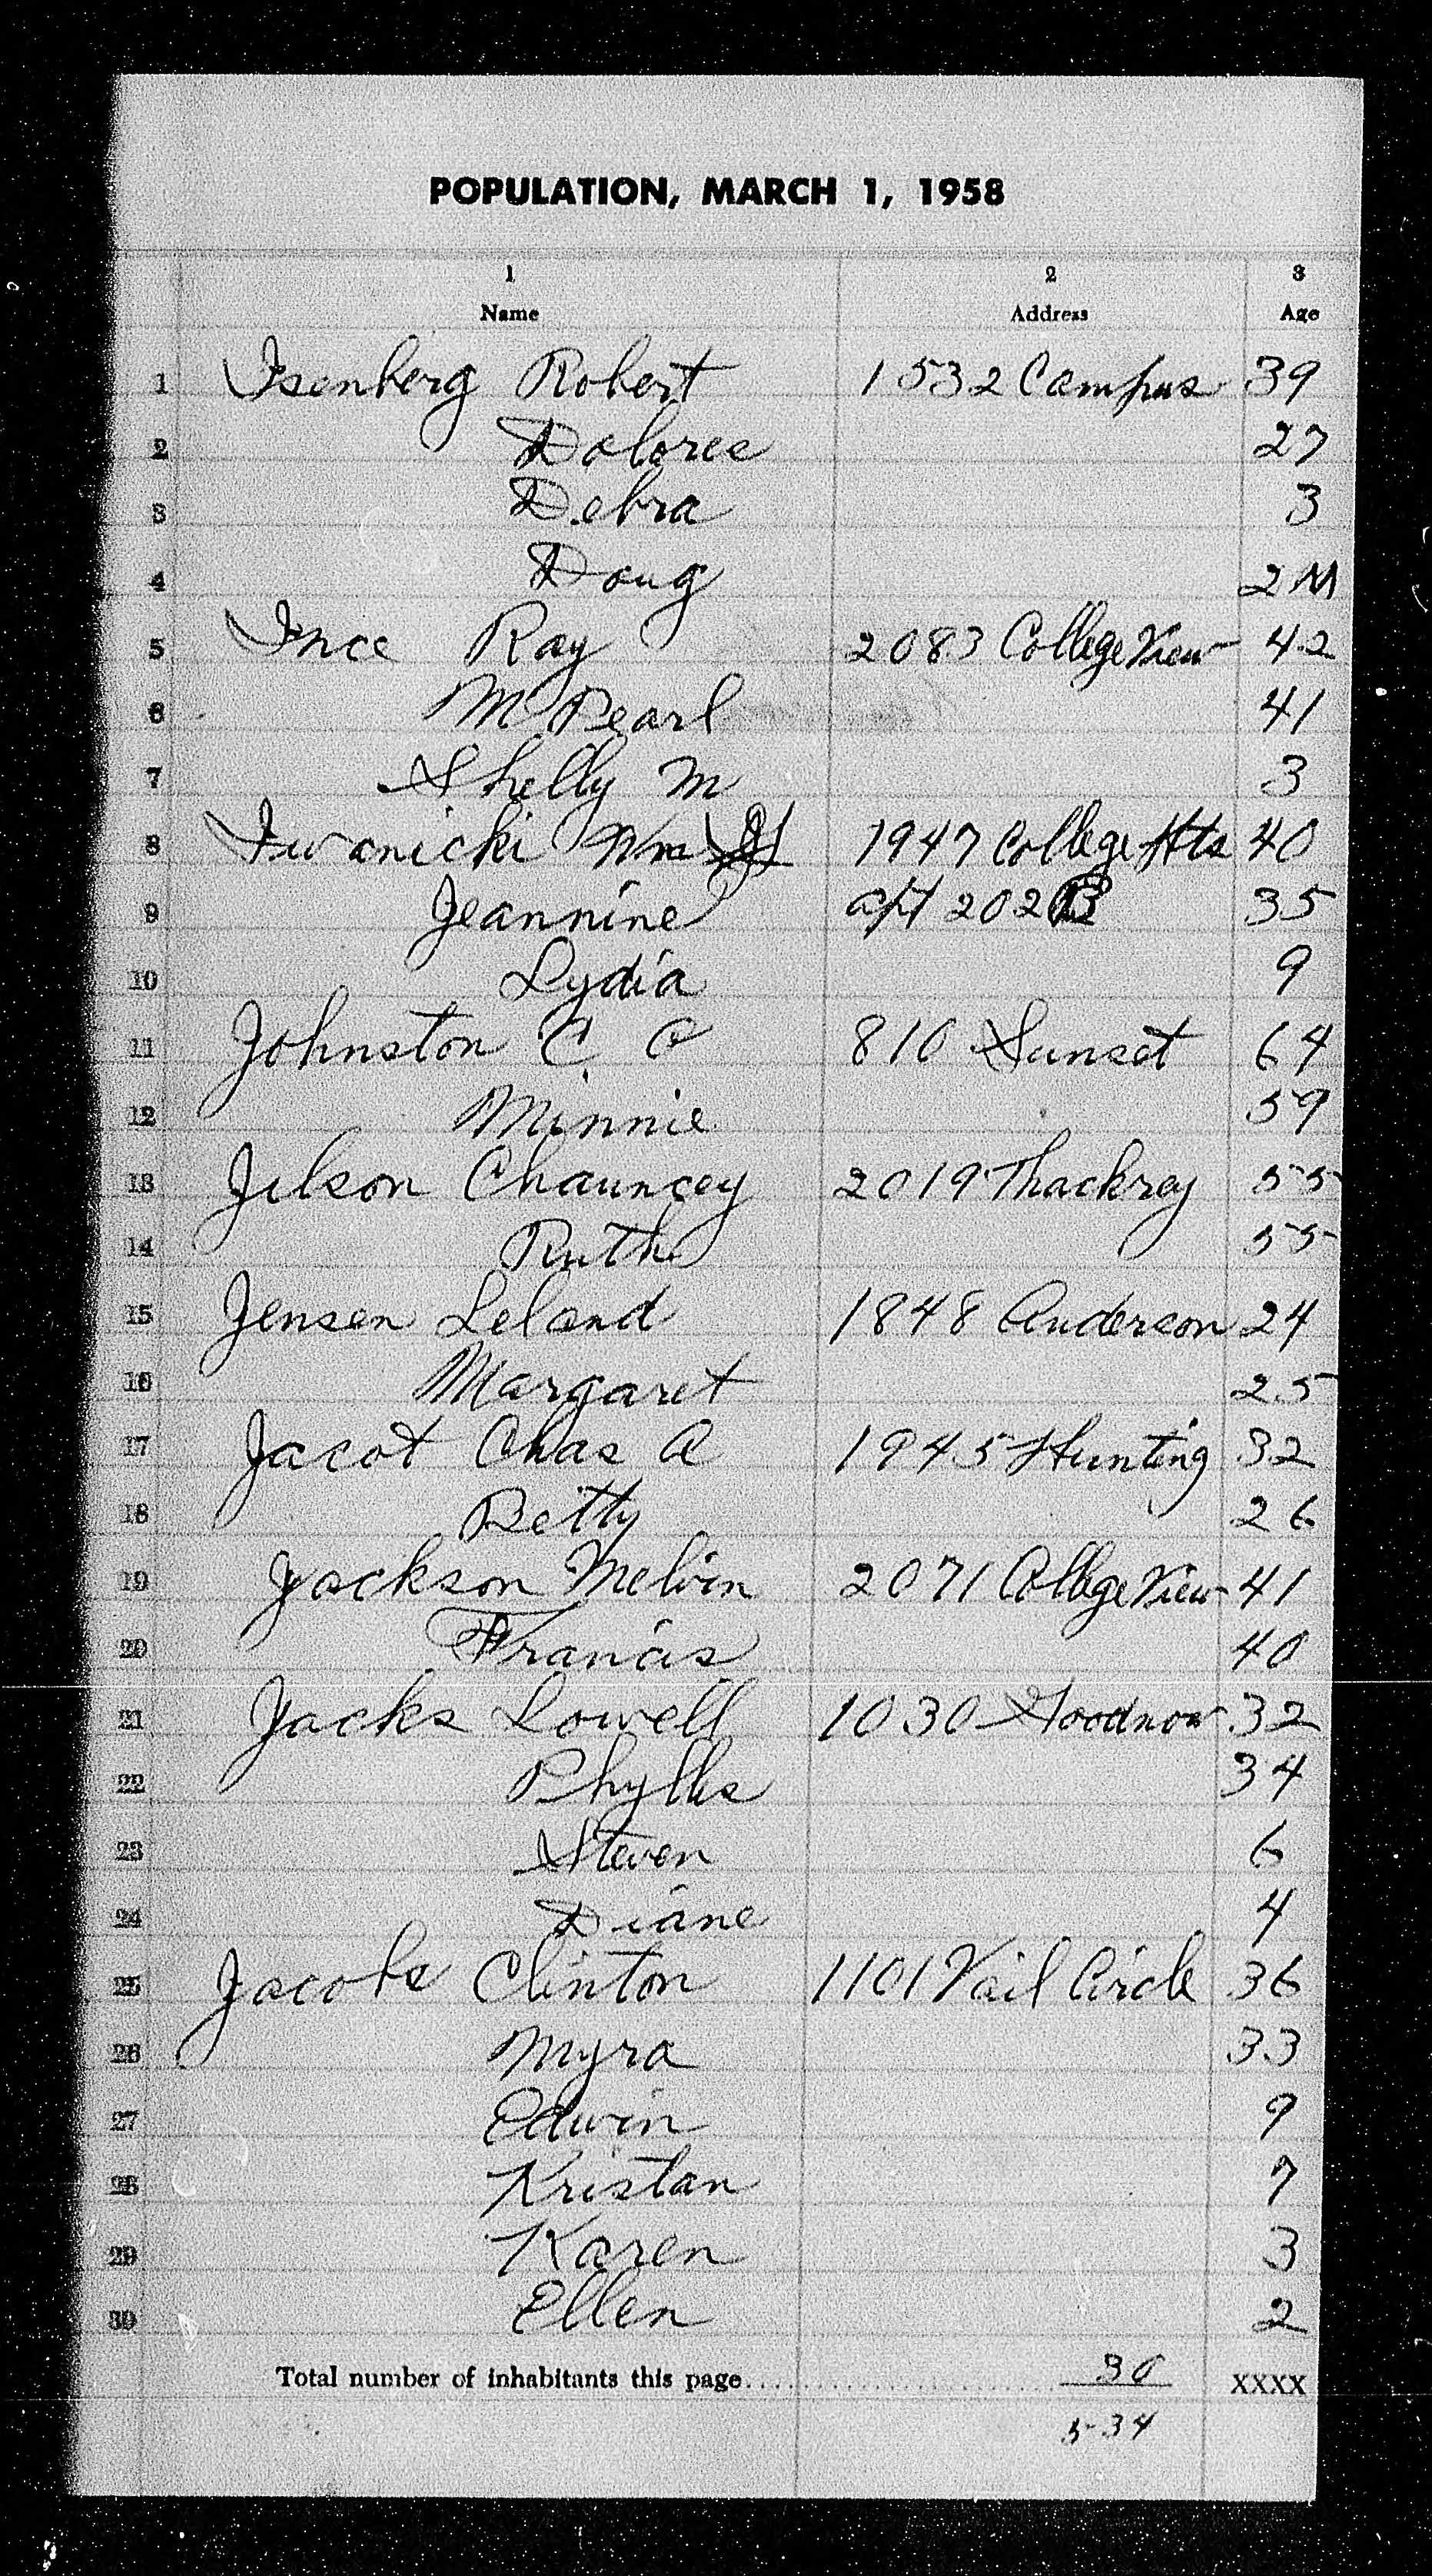 POPULATION, MARCH 1, 1958
1 2 3
Name Address Age
1 Isenberg Robert 1532 Campus 39
2 Dolores 27
3 Debra 3
4 Doug 2M
5 Ince Ray 2083 College View 42
6 M Pearl 41
7 Shelly M 3
8 Iwanicki Wm 1947 College Hts 40
9 Jeannine apt 202B 35
10 Lydia 9
11 Johnston C O 810 Sunset 64
12 Minnie 59
13 Jilson Chauncey 2019 Thackrey 55
14 Ruth 55
15 Jensen Leland 1848 Anderson 24
16 Margaret 25
17 Jacot Chas A 1945 Hunting 32
18 Betty 26
19 Jackson Melvin 2071 College View 41
20 Francis 40
21 Jacks Lowell 1030 Goodnow 32
22 Phyllis 34
23 Steven 6
24 Diane 4
25 Jacobs Clinton 1101 Vail Circle 36
26 Myra 33
27 Edwin 9
28 Kristan 7
29 Karen 3
30 Ellen 2
Total number of inhabitants this page 30 XXXX
534